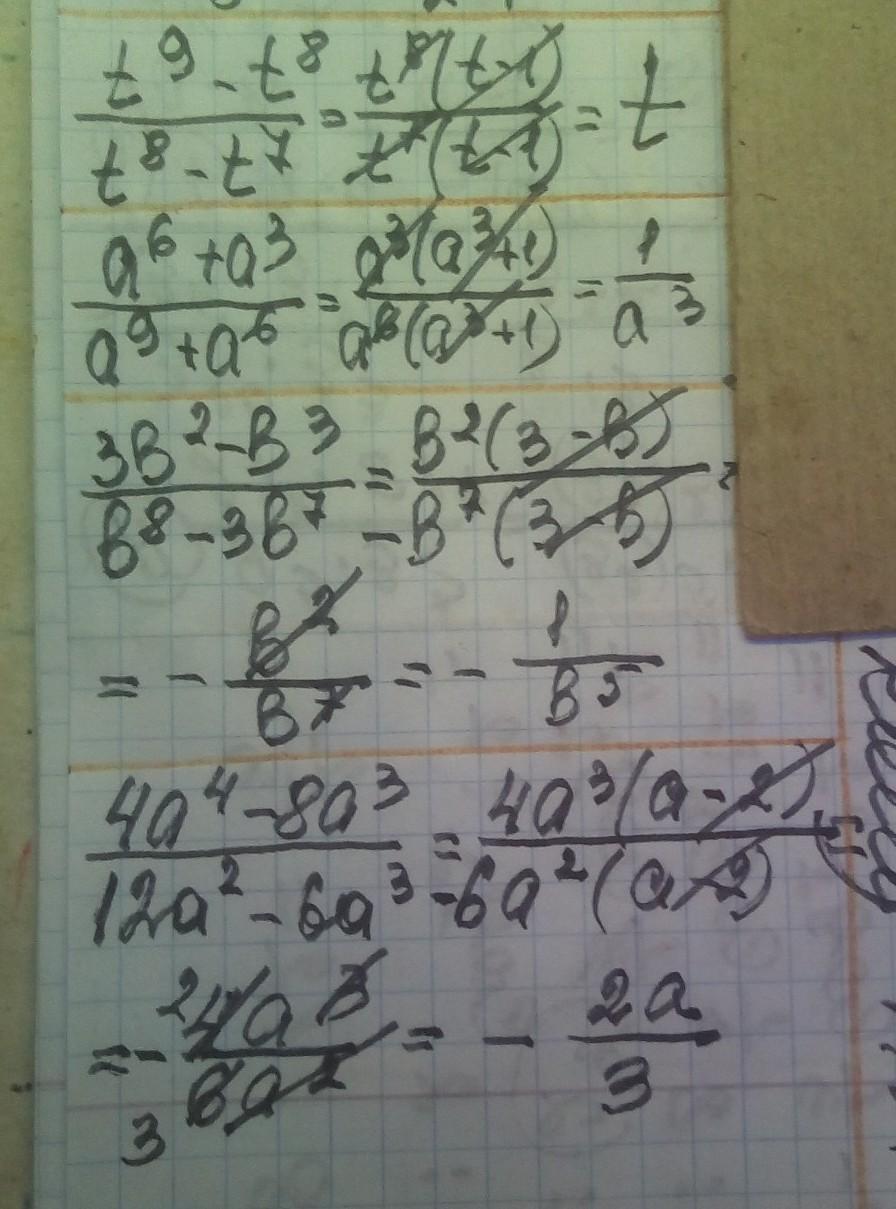 (t⁹ - t⁸)/(t⁸ - t⁷) = t⁸(t-1)/t⁷(t-1) = t
(a⁶ + a³)/(a⁹ + a⁶) = a³(a³+1)/a⁶(a³+1) = 1/a³
(3в² - в³)/(в⁸ - 3в⁷) = в²(3-в)/-в⁷(3-в) =
= - в²/в⁷ = - 1/в⁵
(4a⁴ - 8a³)/(12a² - 6a³) = 4a³(a-2)/-6a²(a-2) =
= - ²4a³/₃6a² = - 2a/3